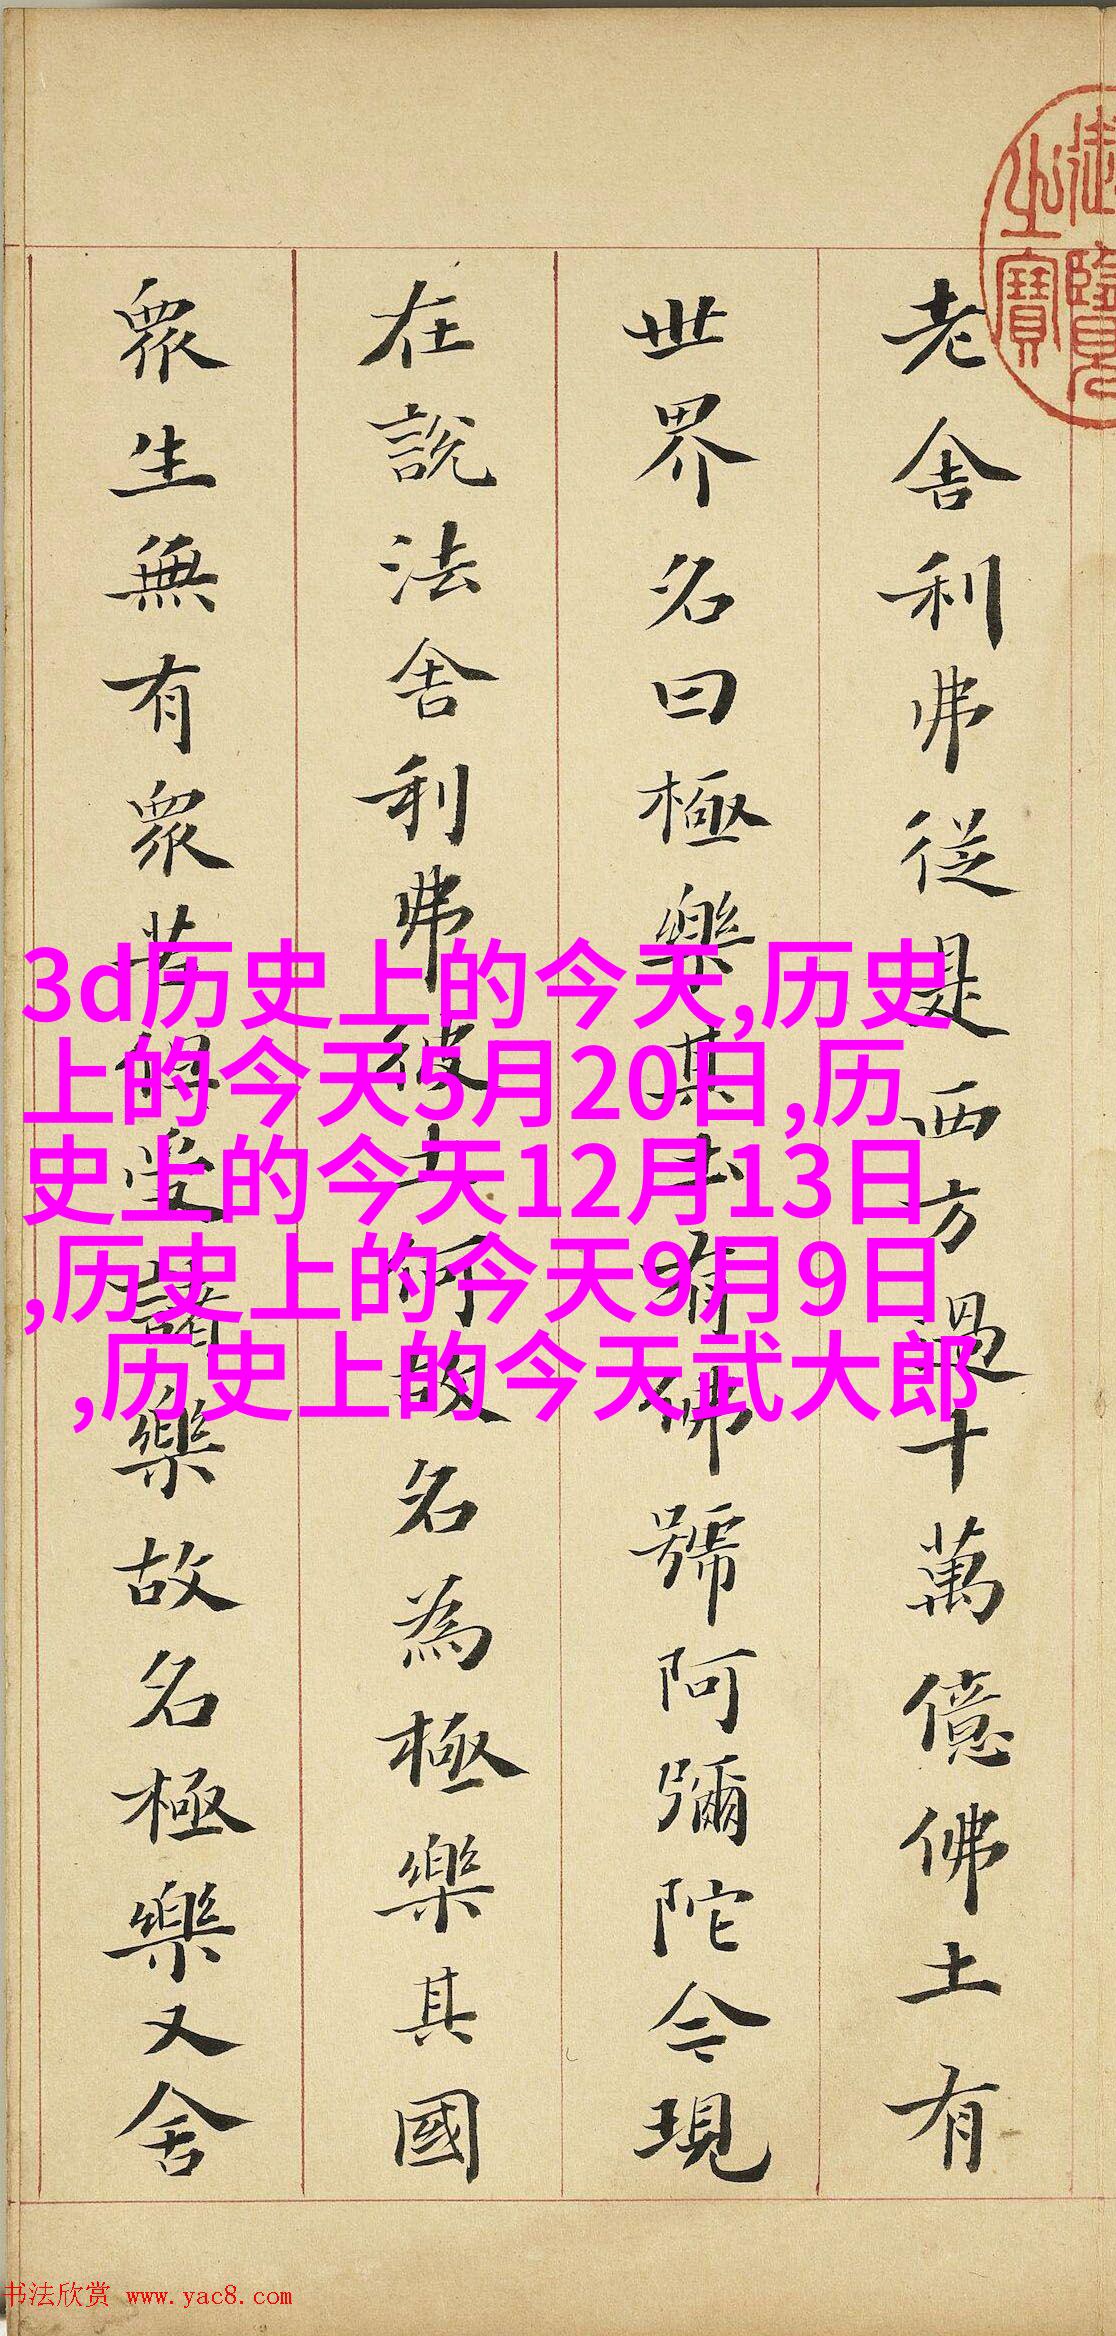 御覽
之寶
老舍利弗從是西方過十萬億佛土有
世界名曰極樂其土有佛號阿彌陀今現
在說法舍利弗彼土何故名為極樂其國
眾生無有眾苦但受諸樂故名極樂又舍
3d历史上的今天,历史
上的今天5月20日,历
史上的今天12月13日
,历史上的今天9月9日
,历史上的今天武大郎
书法欣赏 www.yac8.com